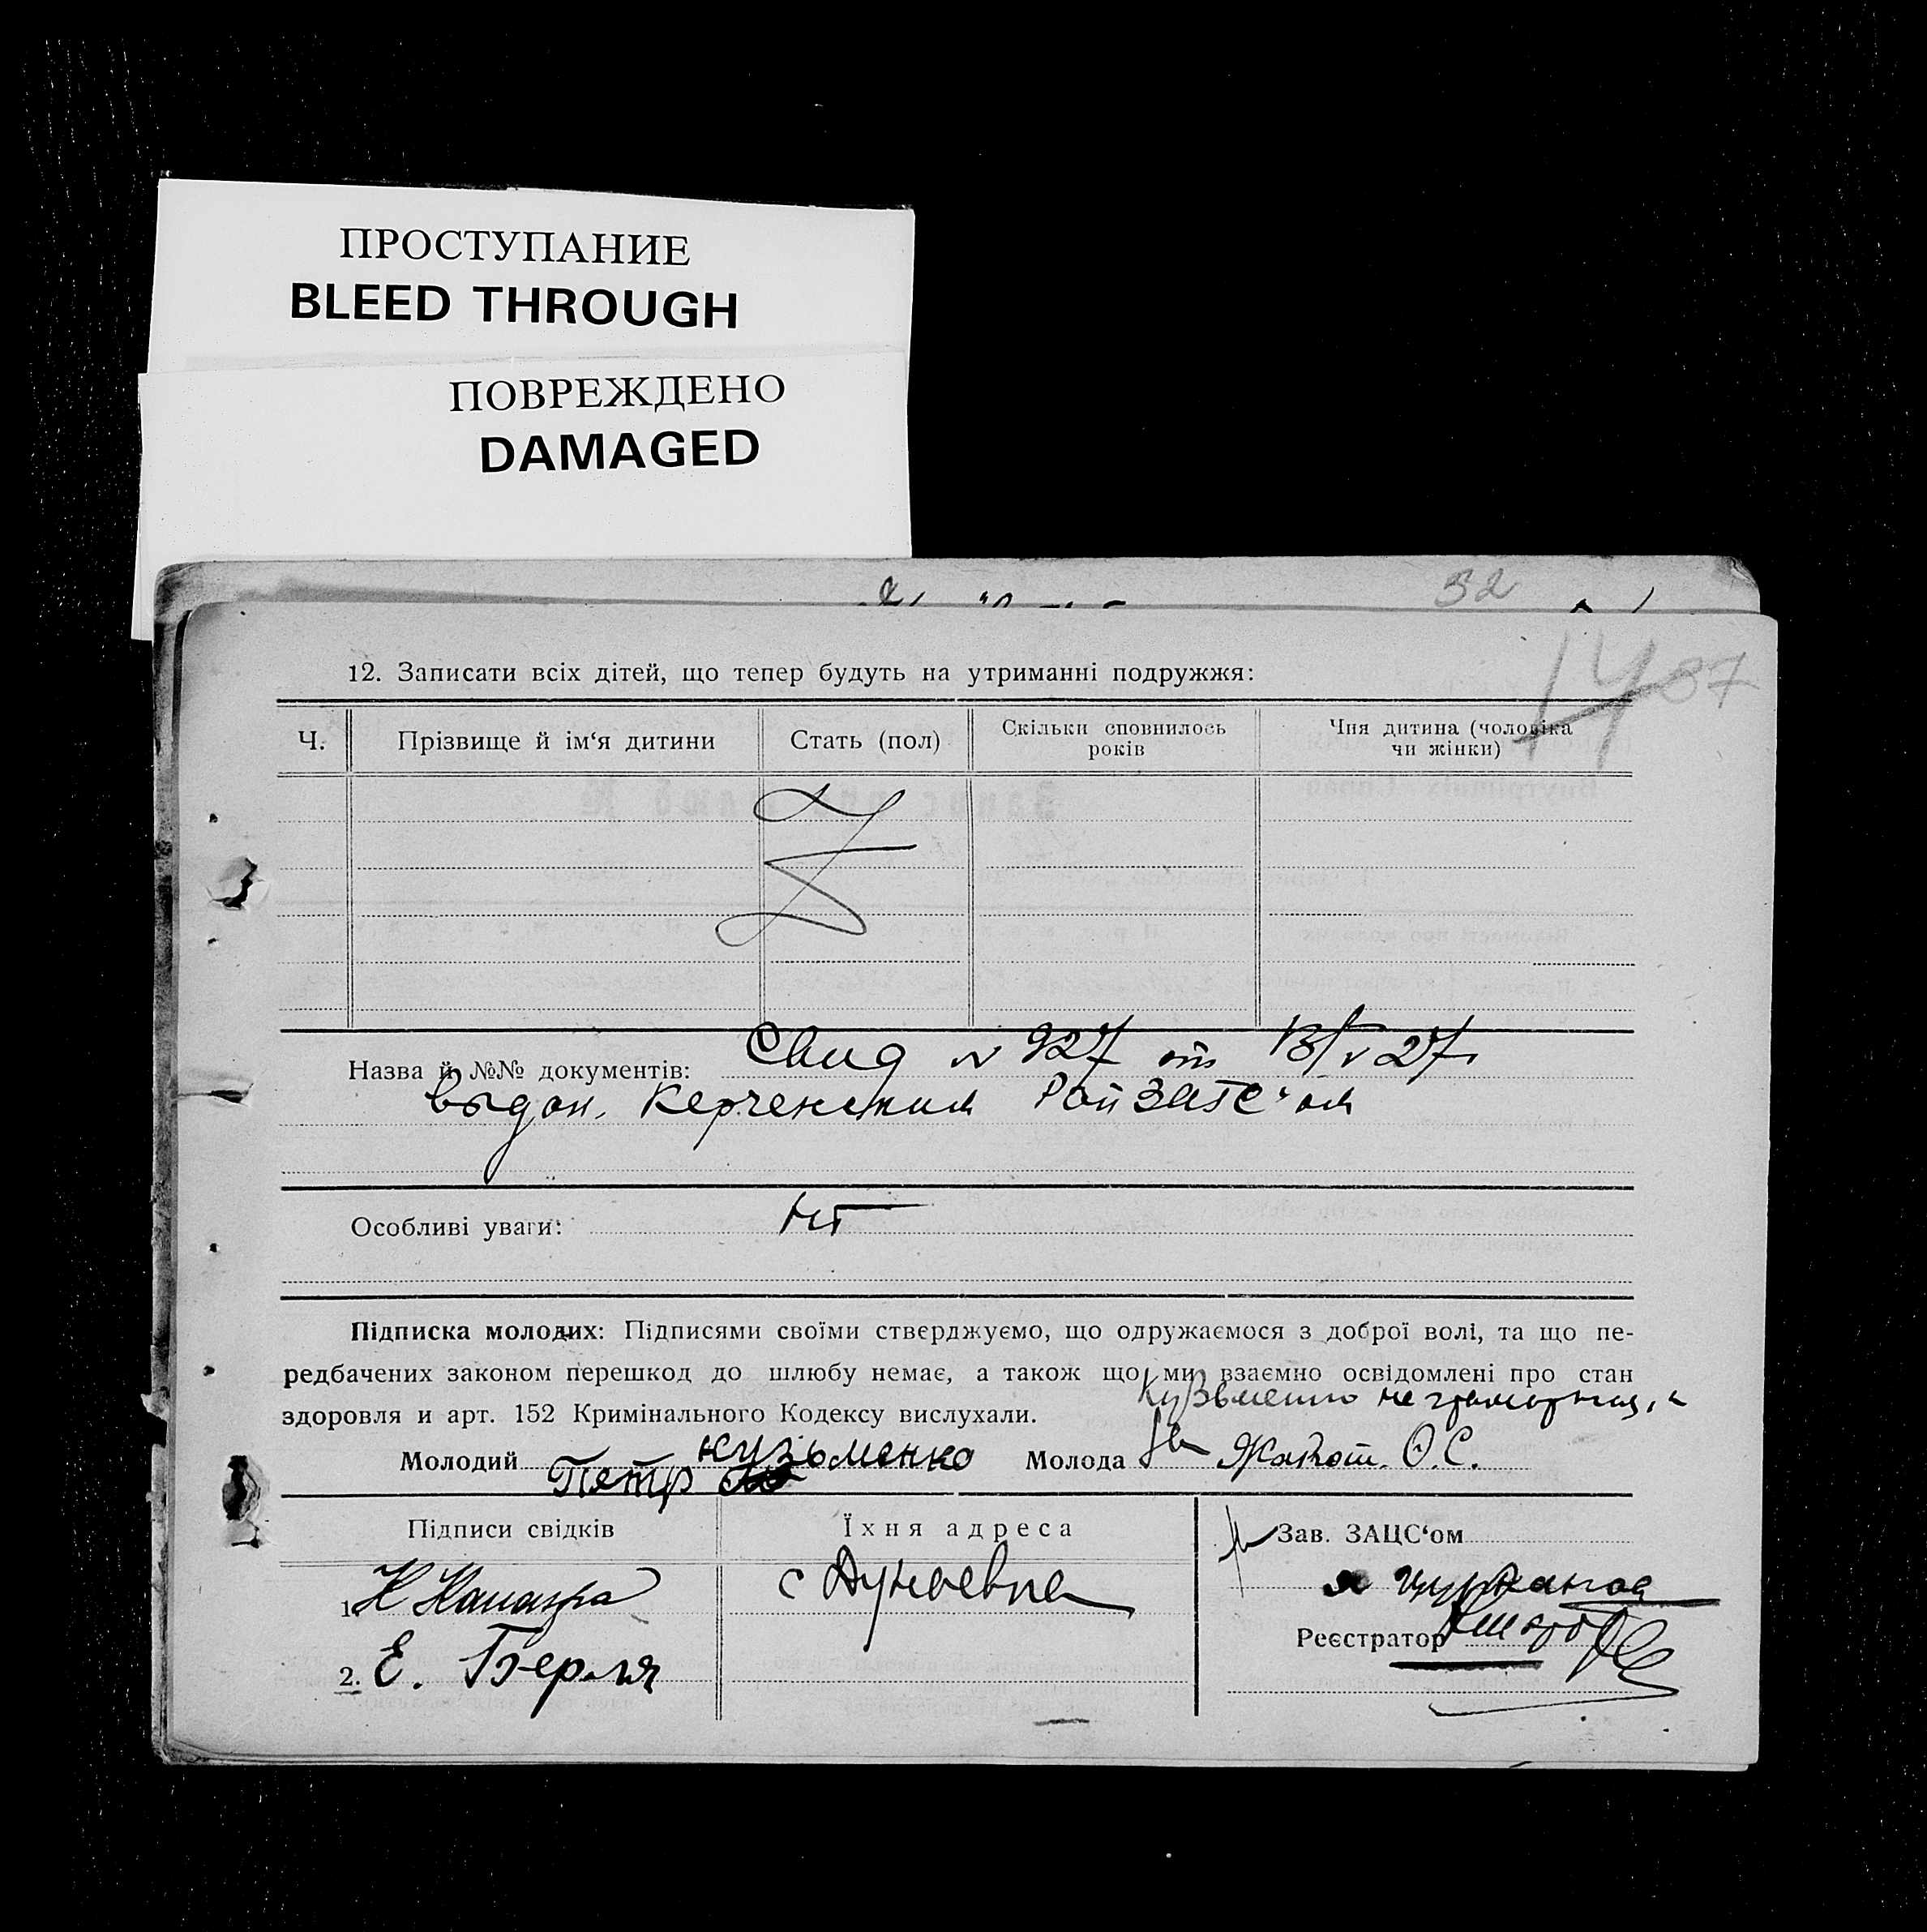 ПРОСТУПАНИЕ
BLEED THROUGH
ПОВРЕЖДЕНО
DAMAGED
32
14 87
12. Записати всіх дітей, що тепер будуть на утриманні подружжя:
Ч. Прізвище й ім‘я дитини Стать (пол) Скільки сповнилось років Чия дитина (чоловіка чи жінки)
Назва й №№ документів: Свид № 927 от 13/V 27г
выдан. Керченским РайЗагс'ом
Особливі уваги:
Підписка молодих: Підписями своїми стверджуємо, що одружаємося з доброї волі, та що пе-
редбачених законом перешкод до шлюбу немає, а також що ми взаємно освідомлені про стан
здоровля и арт. 152 Кримінального Кодексу вислухали.
Кузьменко неграмотная,
Молодий Петр Кузьменко Молода О.С.
Підписи свідків Їхня адреса Зав. ЗАЦС‘ом
1. Н
2. Е. Берля
Реєстратор